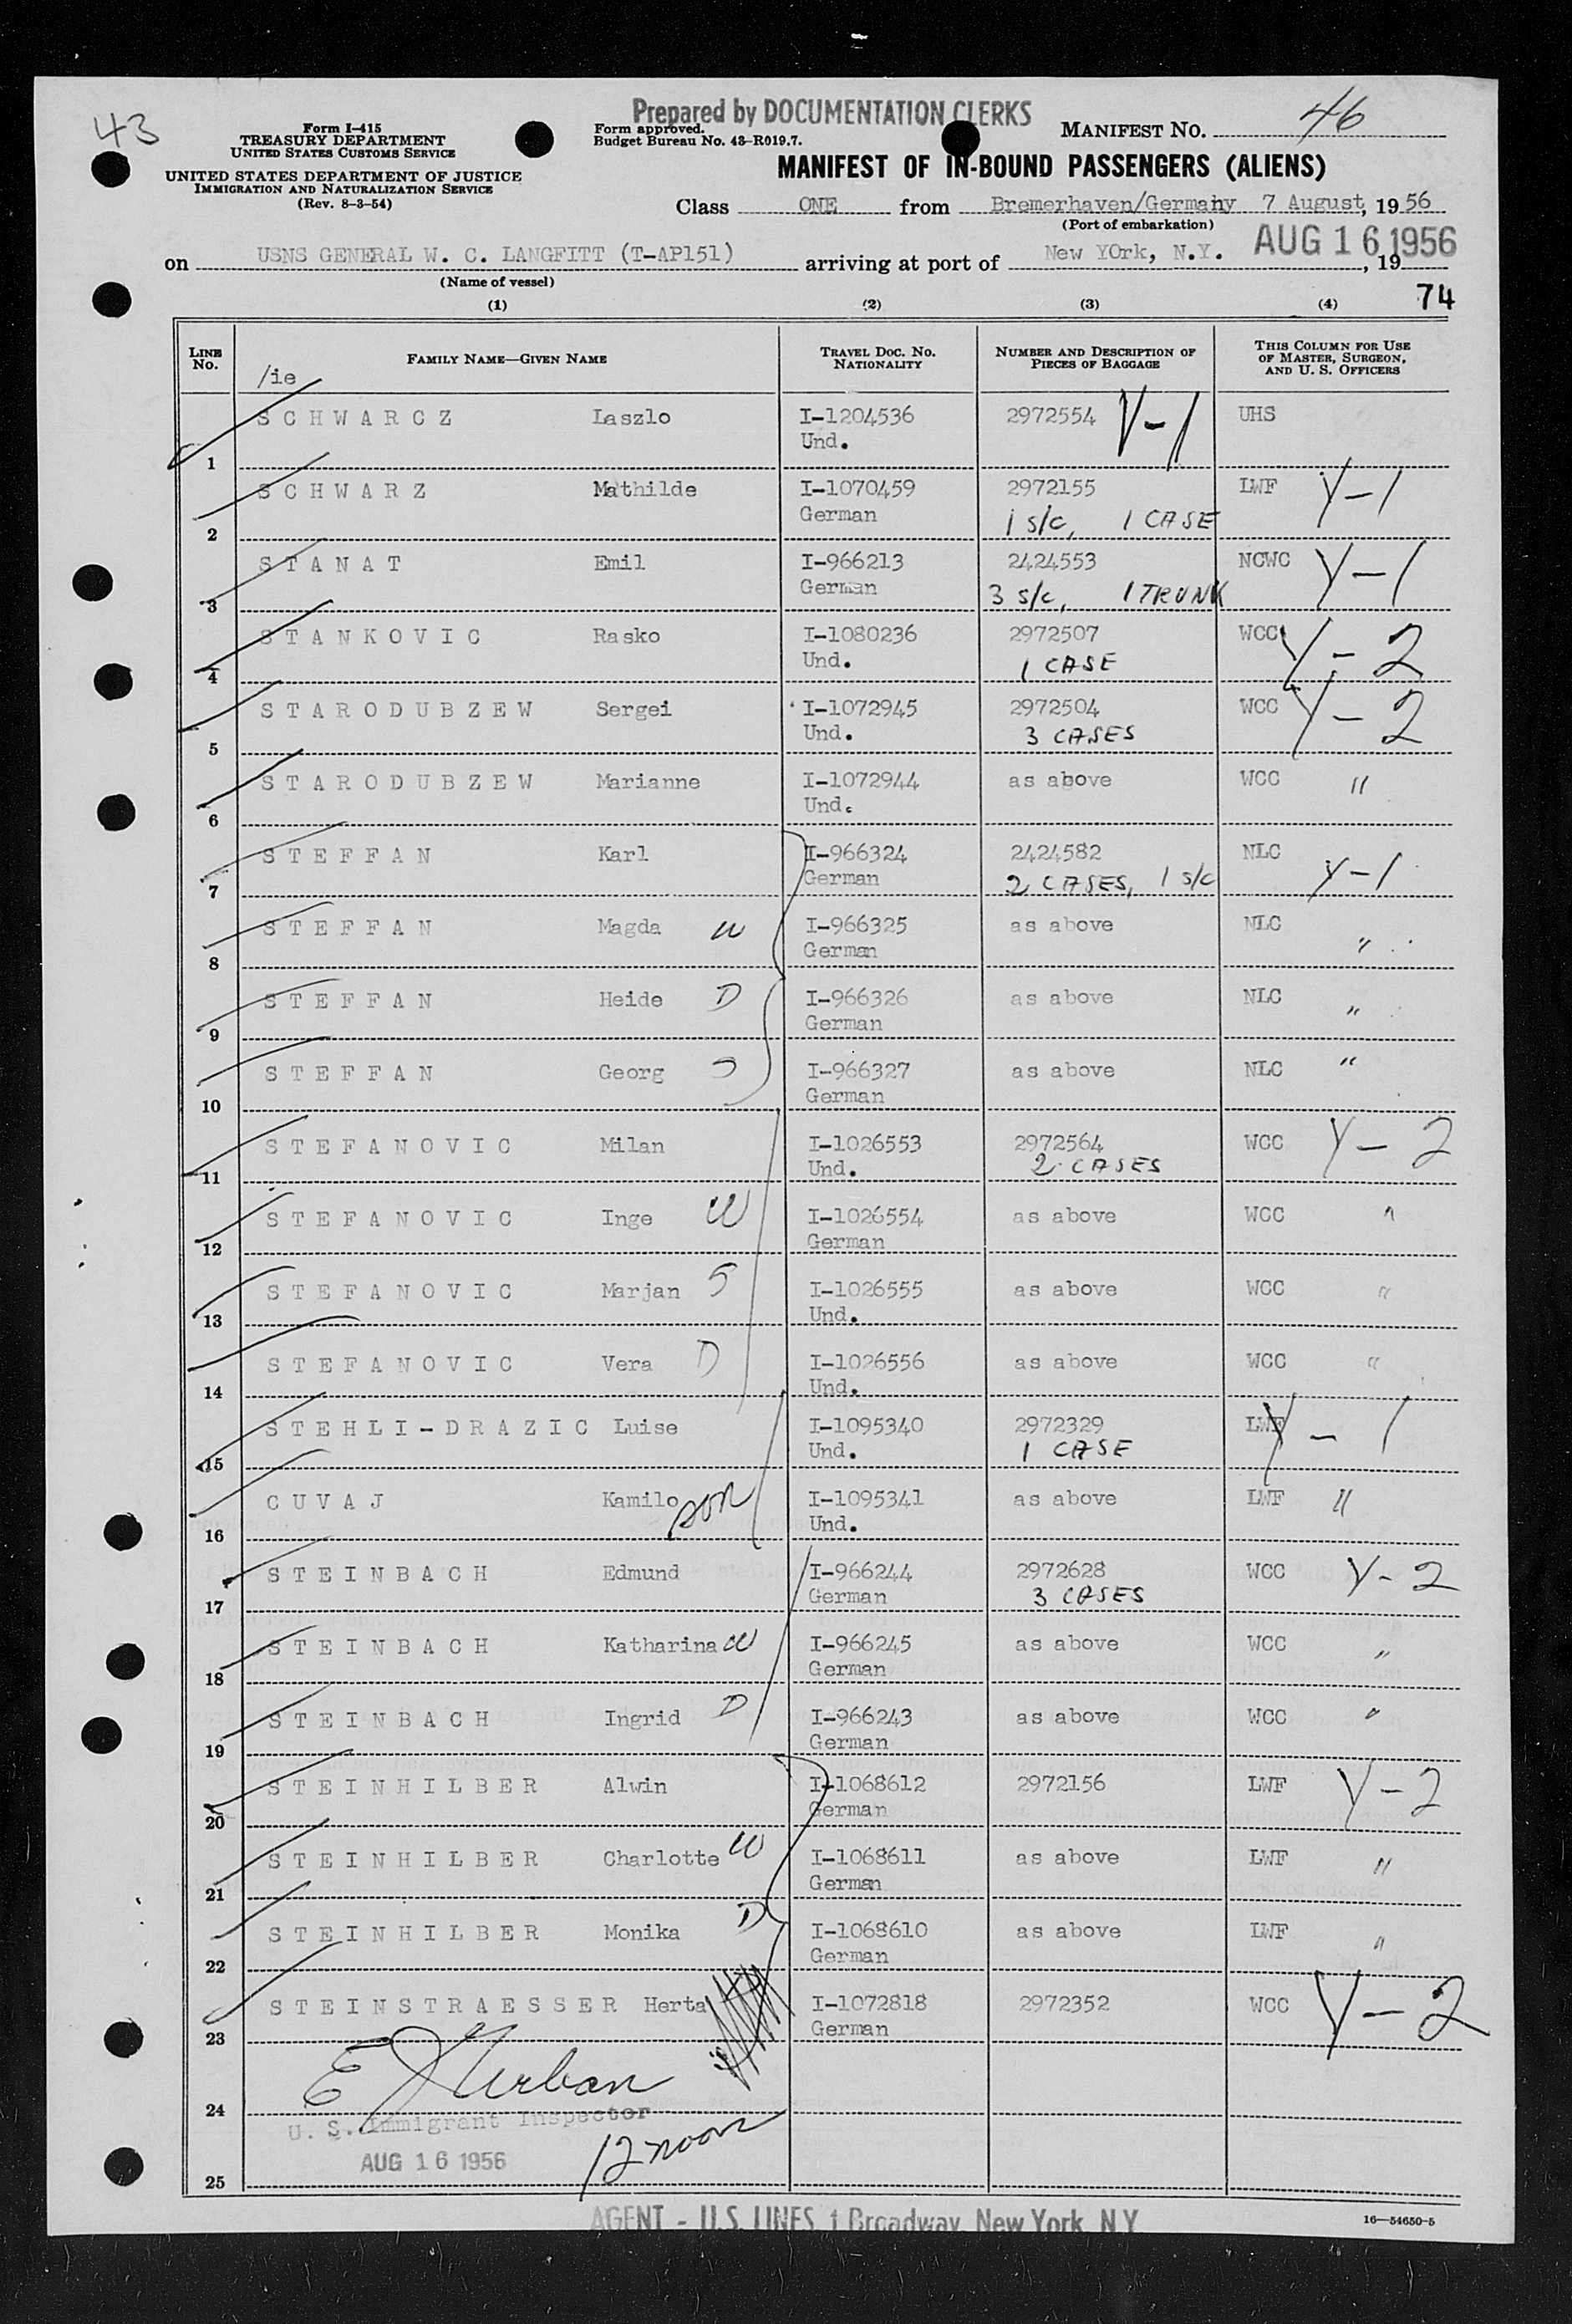 43
Prepared by DOCUMENTATION CLERKS
Form I-415
TREASURY DEPARTMENT
UNITED STATES CUSTOMS SERVICE
UNITED STATES DEPARTMENT OF JUSTICE
IMMIGRATION AND NATURALIZATION SERVICE
(Rev. 8-3-54)
Form approved.
Budget Bureau No. 43-R019.7.
MANIFEST NO. 46
MANIFEST OF IN-BOUND PASSENGERS (ALIENS)
Class ONE from Bremerhaven/Germany 7 August, 1956
(Port of embarkation)
on USNS GENERAL W. C. LANGFITT (T-AP151) arriving at port of New YOrk, N.Y. AUG 16 1956, 19
(Name of vessel)
74
(1) (2) (3) (4)
LINE NO. FAMILY NAME—GIVEN NAME TRAVEL DOC. NO. NATIONALITY NUMBER AND DESCRIPTION OF PIECES OF BAGGAGE THIS COLUMN FOR USE OF MASTER, SURGEON, AND U. S. OFFICERS
/ie
1 SCHWARCZ Laszlo I-1204536 2972554 Y-1 UHS
Und.
2 SCHWARZ Mathilde I-1070459 2972155 LWF Y-1
German 1 s/c, 1 CASE
3 STANAT Emil I-966213 2424553 NCWC Y-1
German 3 s/c, 1 TRUNK
4 STANKOVIC Rasko I-1080236 2972507 WCC Y-2
Und. 1 CASE
5 STARODUBZEW Sergei I-1072945 2972504 WCC Y-2
Und. 3 CASES
6 STARODUBZEW Marianne I-1072944 as above WCC "
Und.
7 STEFFAN Karl I-966324 2424582 NLC Y-1
German 2 CASES, 1 s/c
8 STEFFAN Magda W I-966325 as above NLC "
German
9 STEFFAN Heide D I-966326 as above NLC "
German
10 STEFFAN Georg S I-966327 as above NLC "
German
11 STEFANOVIC Milan I-1026553 2972564 WCC Y-2
Und. 2 CASES
12 STEFANOVIC Inge W I-1026554 as above WCC "
German
13 STEFANOVIC Marjan S I-1026555 as above WCC "
Und.
14 STEFANOVIC Vera D I-1026556 as above WCC "
Und.
15 STEHLI-DRAZIC Luise I-1095340 2972329 LWF Y-1
Und. 1 CASE
16 CUVAJ Kamilo son I-1095341 as above LWF "
Und.
17 STEINBACH Edmund I-966244 2972628 WCC Y-2
German 3 CASES
18 STEINBACH Katharina W I-966245 as above WCC "
German
19 STEINBACH Ingrid D I-966243 as above WCC "
German
20 STEINHILBER Alwin I-1068612 2972156 LWF Y-2
German
21 STEINHILBER Charlotte W I-1068611 as above LWF "
German
22 STEINHILBER Monika D I-1068610 as above LWF "
German
23 STEINSTRAESSER Herta I-1072818 2972352 WCC Y-2
German
E J Urban
24
U. S. Immigrant Inspector
AUG 16 1956 12 noon
25
AGENT - U.S. LINES 1 Broadway, New York, N.Y.
16—54650-5